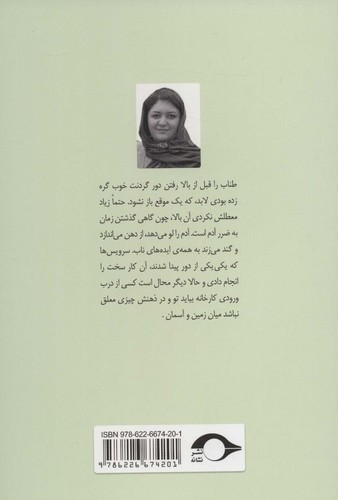 طناب را قبل از بالا رفتن دور گردنت خوب گره
زده بودی لابد، که یک موقع باز نشود. حتماً زیاد
معطلش نکردی آن بالا، چون گاهی گذشتن زمان
به ضرر آدم است. آدم را لو می‌دهد، از دهن می‌اندازد
و گند می‌زند به همه‌ی ایده‌های ناب. سرویس‌ها
که یکی‌یکی از دور پیدا شدند، آن کار سخت را
انجام دادی و حالا دیگر محال است کسی از درب
ورودی کارخانه بیاید تو و در ذهنش چیزی معلق
نباشد میان زمین و آسمان.
ISBN 978-622-6674-20-1
9 786226 674201
نشر
نشانه